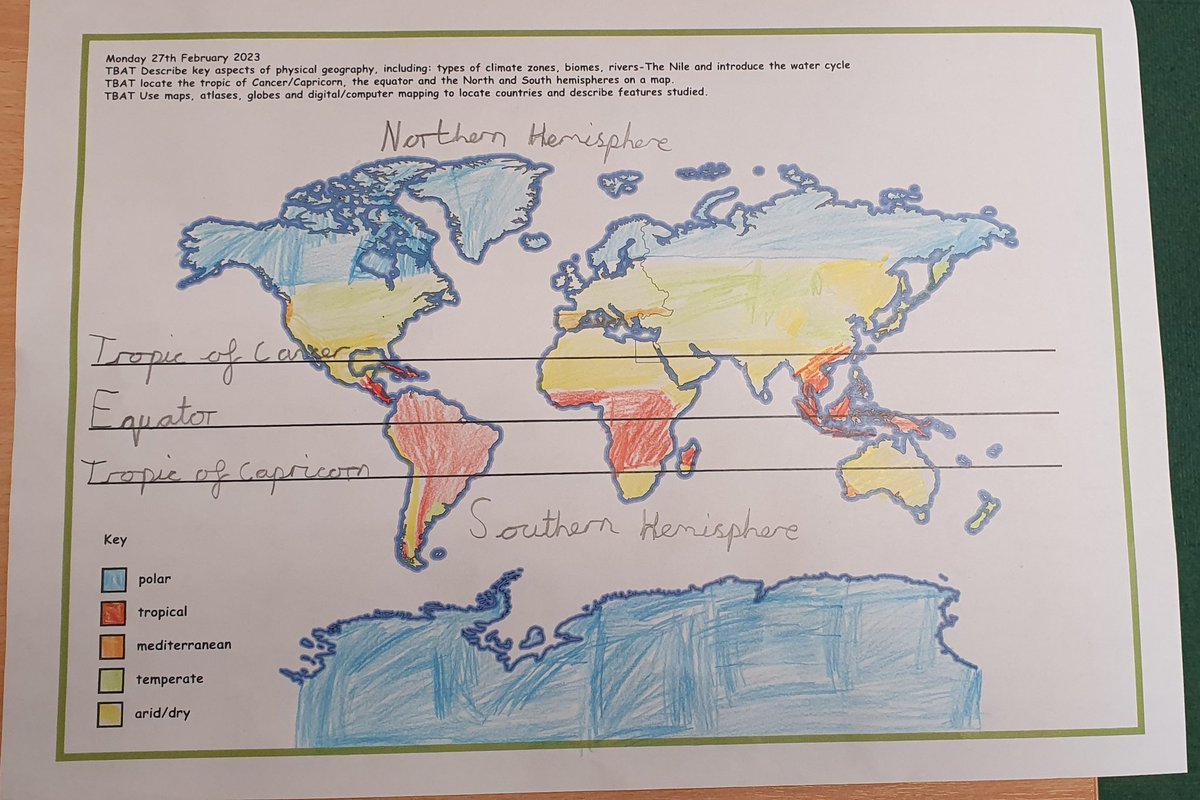 Monday 27th February 2023
TBAT Describe key aspects of physical geography, including: types of climate zones, biomes, rivers-The Nile and introduce the water cycle
TBAT locate the tropic of Cancer/Capricorn, the equator and the North and South hemispheres on a map.
TBAT Use maps, atlases, globes and digital/computer mapping to locate countries and describe features studied.
Northern Hemisphere
Tropic of Cancer
Equator
Tropic of Capricorn
Southern Hemisphere
Key
polar
tropical
mediterranean
temperate
arid/dry